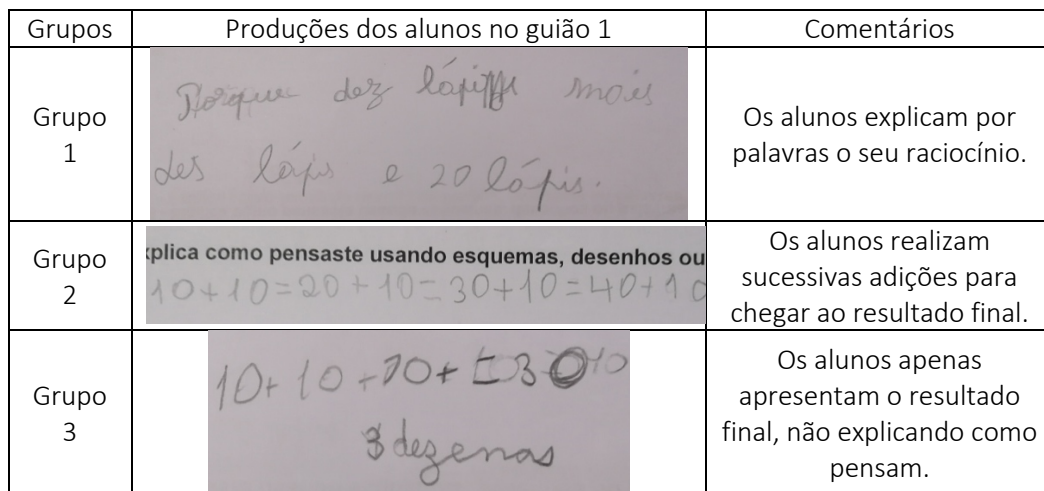 Grupos Produções dos alunos no guião 1 Comentários
Grupo 1
Porque dez lápis mais
des lápis e 20 lápis.
Os alunos explicam por
palavras o seu raciocínio.
Grupo 2
xplica como pensaste usando esquemas, desenhos ou
10+10=20+10=30+10=40+10
Os alunos realizam
sucessivas adições para
chegar ao resultado final.
Grupo 3
10+10+10+=30
3 dezenas
Os alunos apenas
apresentam o resultado
final, não explicando como
pensam.